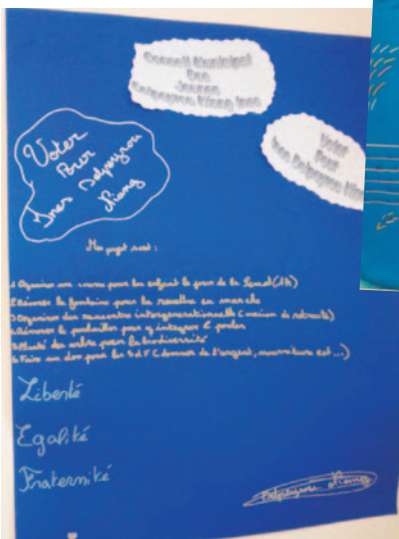 Conseil Municipal
Des
Jeunes
Delpeyrou Niang Ines
Voter
Pour
Ines Delpeyrou Niang
Voter
Pour
Ines Delpeyrou
Niang
Mes projet sont :
1 Organiser une course pour les enfant le jour de la
2 Rénover la fontaine pour la remettre en marche
3 Organiser des rencontre intergénérationnelle (maison de retraite)
4 Rénover le poulailler pour y intégrer 2 poules
5 Planté des arbre pour la biodiversité
6 Faire un don pour les SdF (donner de l'argent, nourriture ect...)
Liberté
Egalité
Fraternité
Delpeyrou Niang